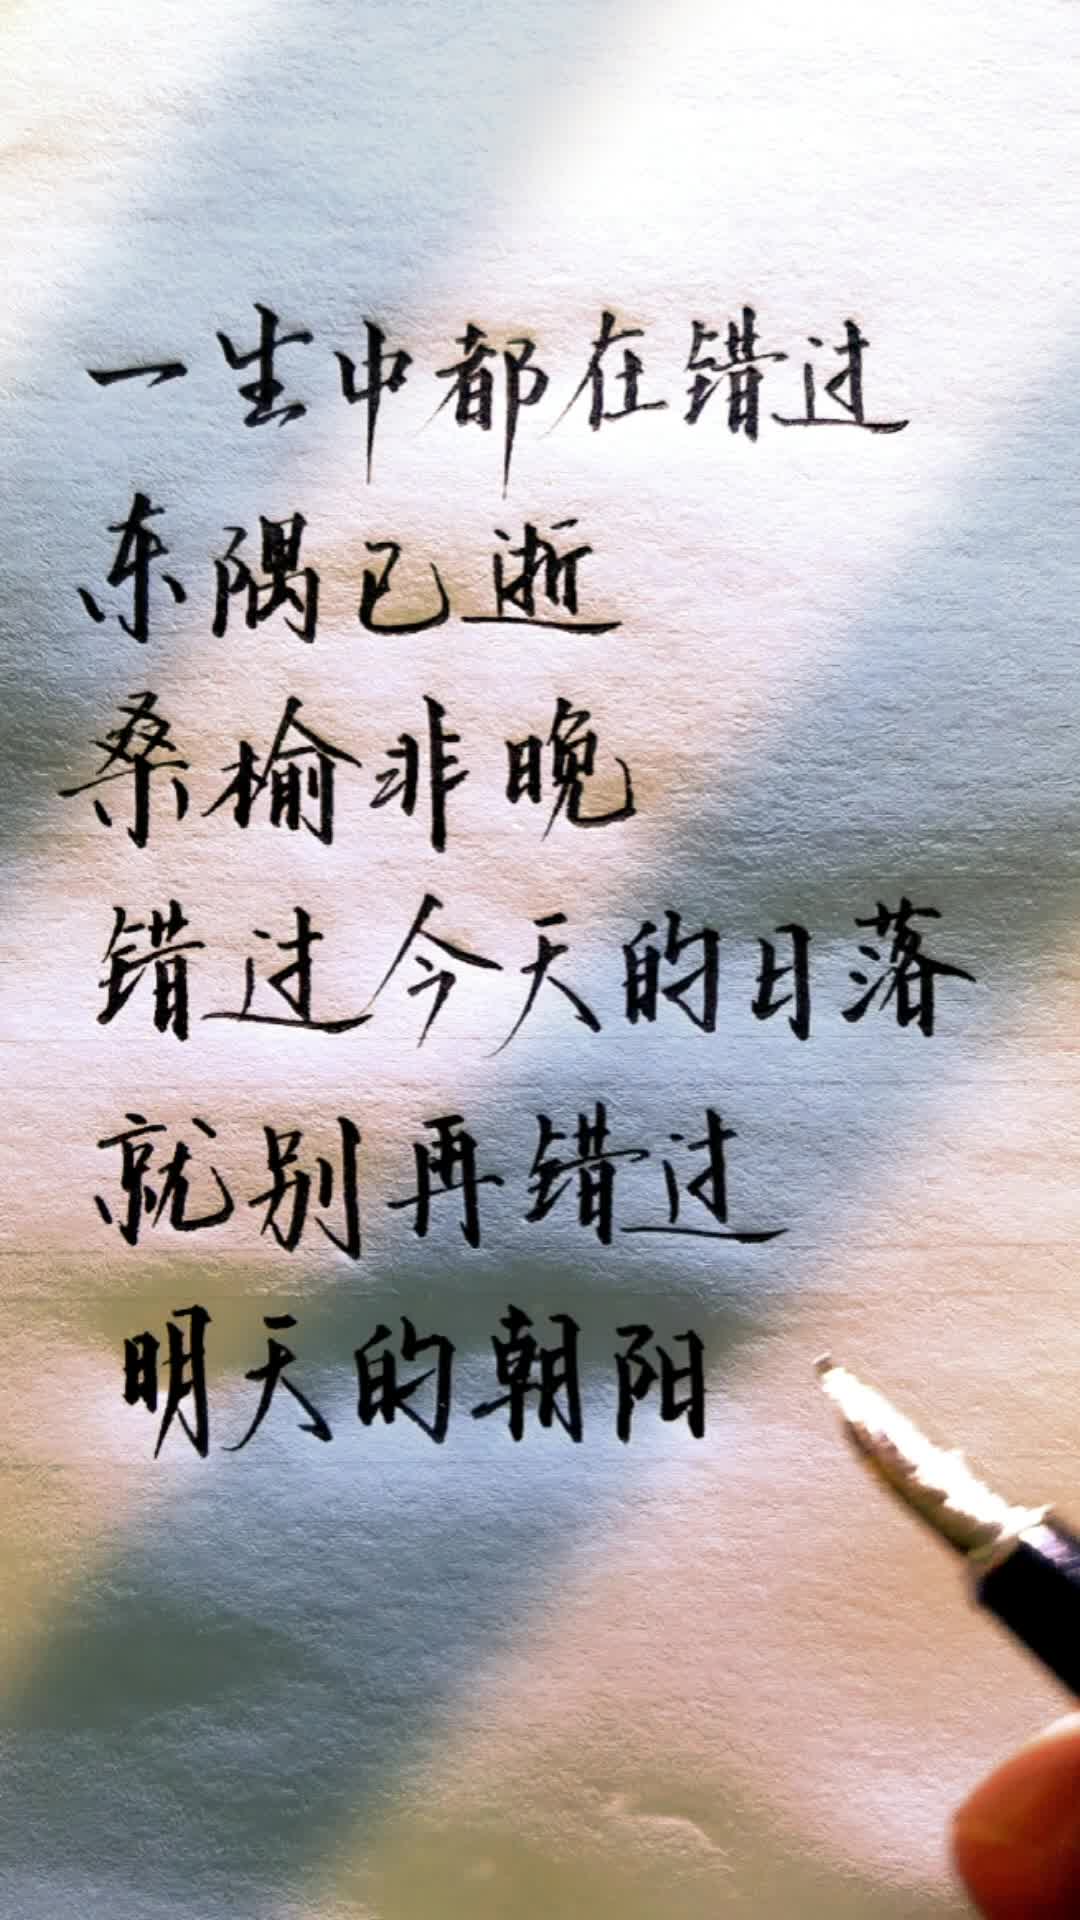 一生中都在错过
东隅已逝
桑榆非晚
错过今天的日落
就别再错过
明天的朝阳